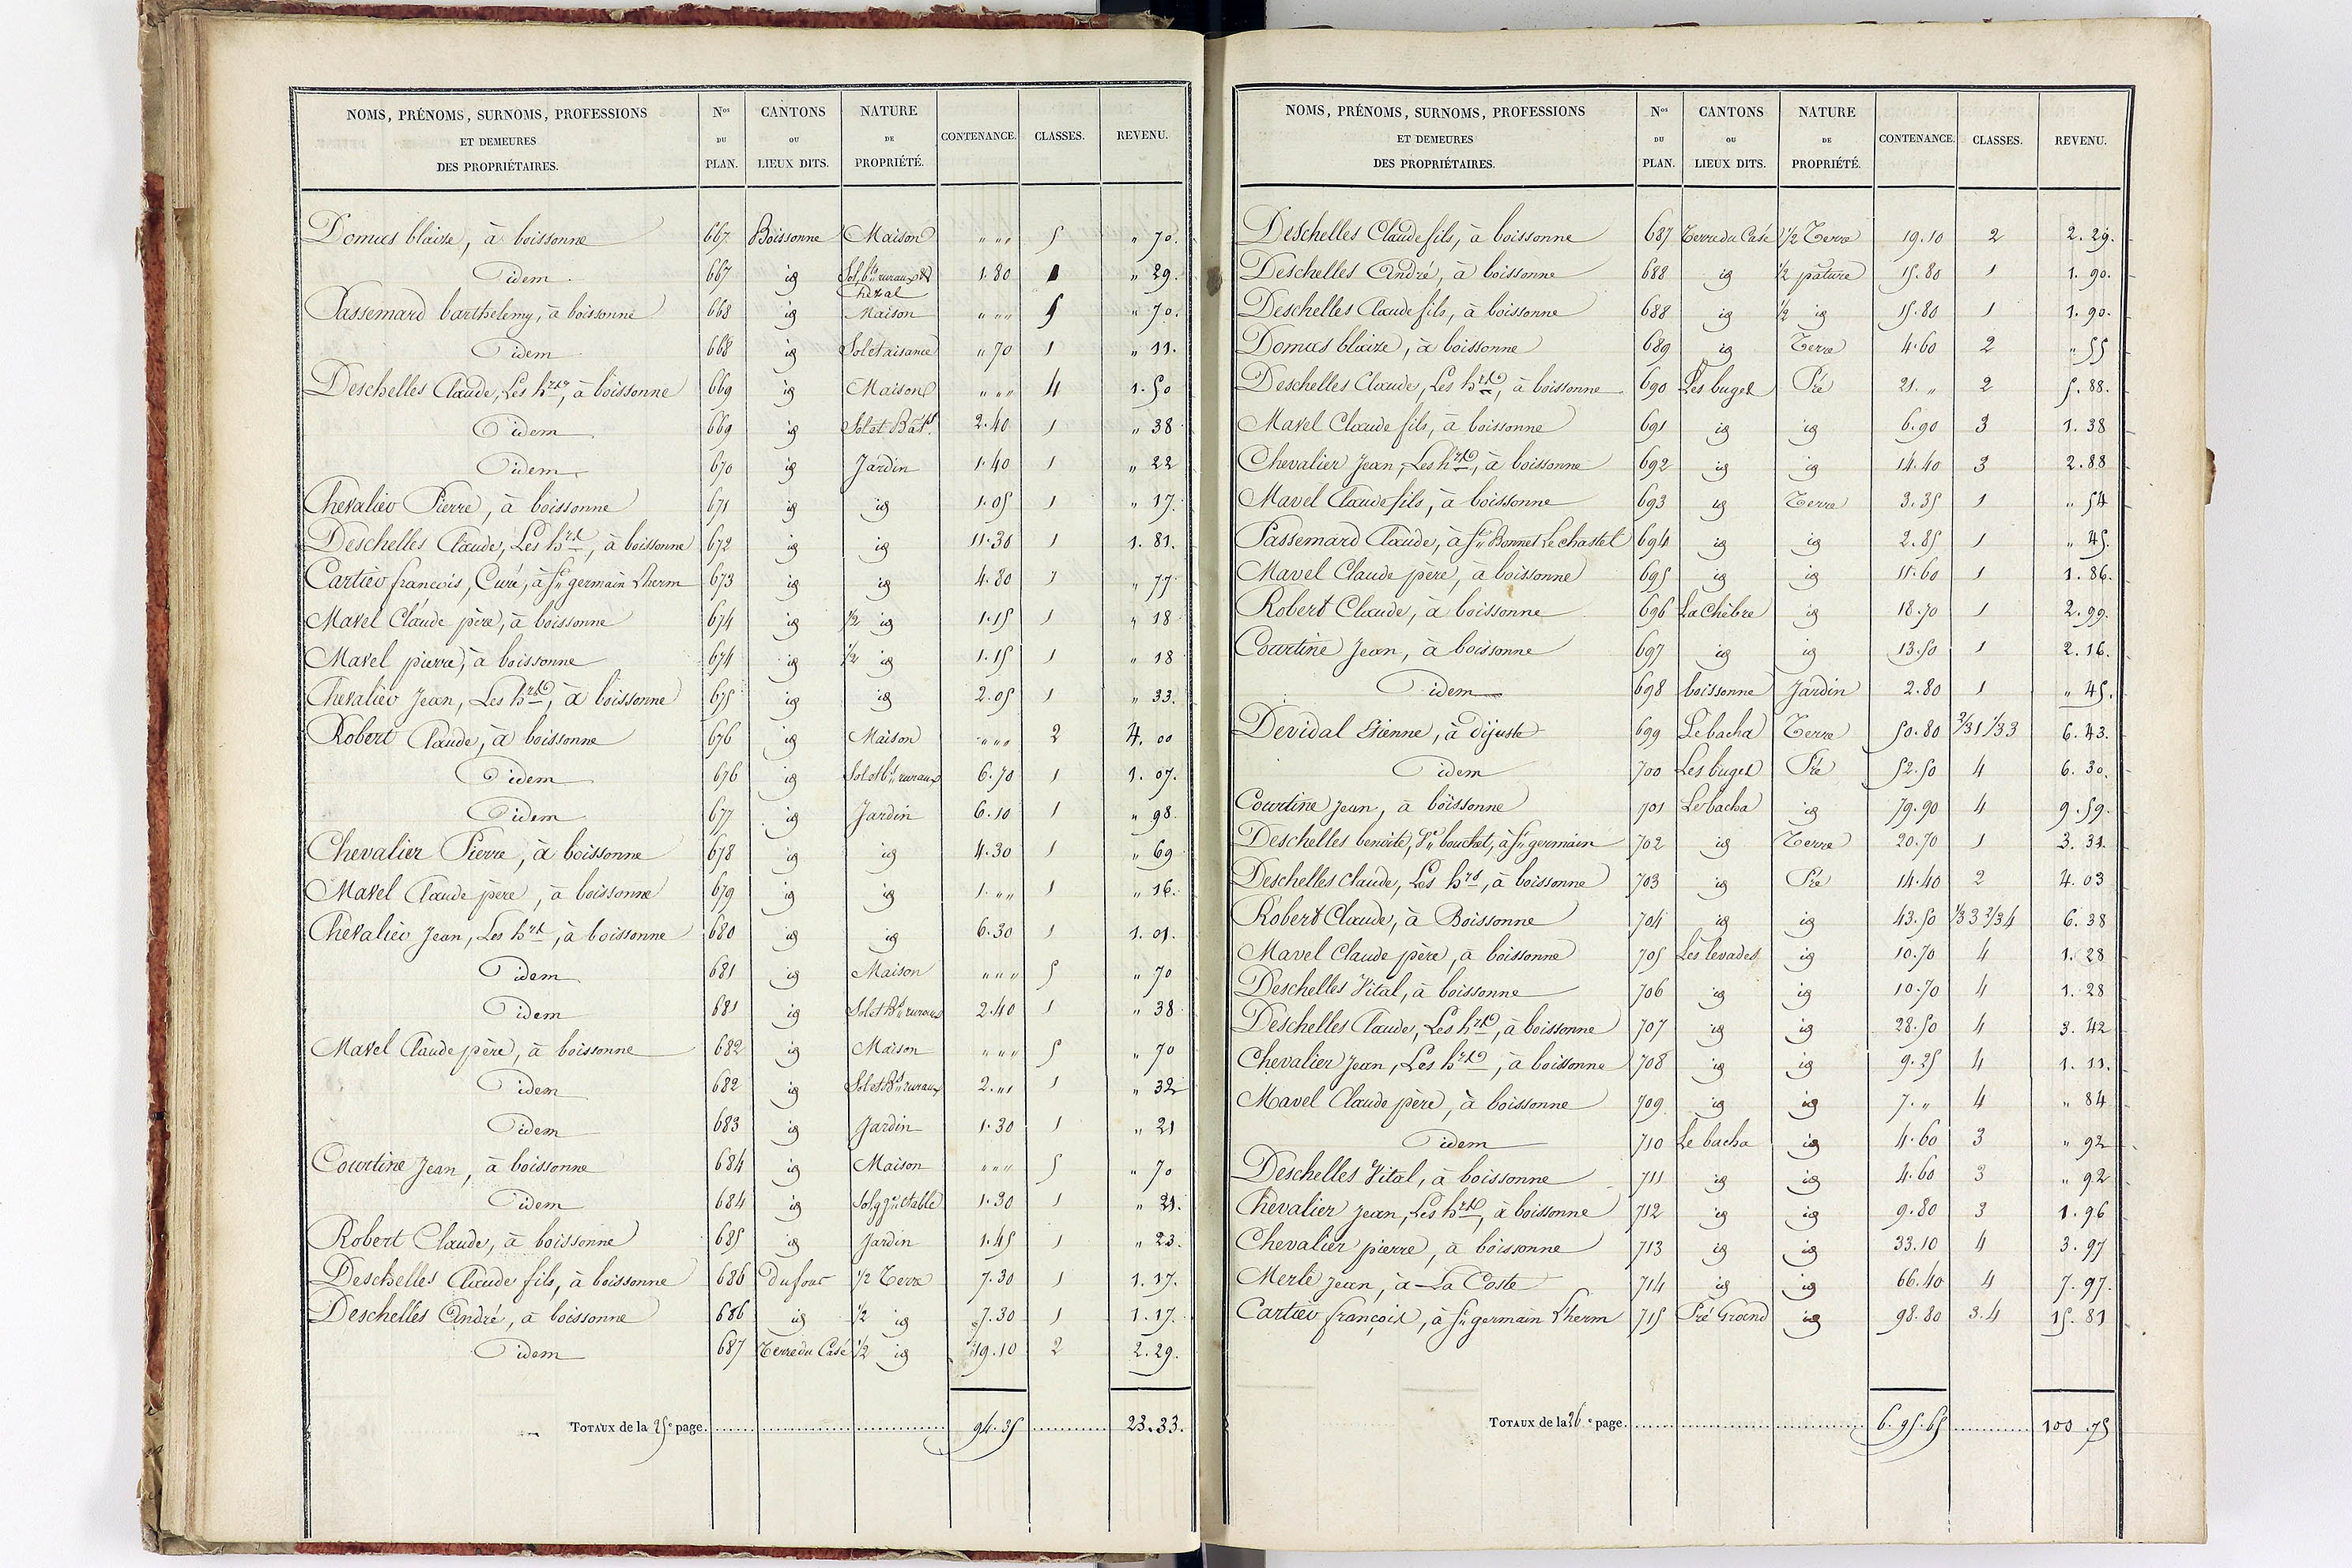 NOMS, PRÉNOMS, SURNOMS, PROFESSIONS ET DEMEURES DES PROPRIÉTAIRES. Nos DU PLAN. CANTONS OU LIEUX DITS. NATURE DE PROPRIÉTÉ. CONTENANCE. CLASSES. REVENU.
Domas blaize, à boissonne 667 Boissonne Maison " " " 5 " 70.
Idem 667 id 1.80 1 " 29.
Passemard barthelemy, à boissonne 668 id Maison " " " 5 " 70.
Idem 668 id Sol et aisance " 70 1 " 11.
Deschelles Claude, Les hrs, à boissonne 669 id Maison " " " 4 1.50
Idem 669 id Sol et Bâts. 2.40 1 " 38
Idem 670 id Jardin 1.40 1 " 22
Chevalier Pierre, à boissonne 671 id id 1.05 1 " 17.
Deschelles Claude, Les hrs, à boissonne 672 id id 11.30 1 1.81.
Cartier francois, Curé, à St germain Lherm 673 id id 4.80 1 " 77
Mavel Claude père, à boissonne 674 id 1/2 id 1.15 1 " 18
Mavel pierre, à boissonne 674 id 1/2 id 1.15 1 " 18
Chevalier Jean, Les hrs, à boissonne 675 id id 2.05 1 " 33.
Robert Claude, à boissonne 676 id Maison " " " 2 4.00
Idem 676 id Sol et bts ruraux 6.70 1 1.07.
Idem 677 id Jardin 6.10 1 " 98.
Chevalier Pierre, à boissonne 678 id id 4.30 1 " 69
Mavel Claude père, à boissonne 679 id id 1. " " 1 " 16.
Chevalier Jean, Les hrs, à boissonne 680 id id 6.30 1 1.01.
Idem 681 id Maison " " " 5 " 70
Idem 681 id Sol et Bts ruraux 2.40 1 " 38
Mavel Claude père, à boissonne 682 id Maison " " " 5 " 70
Idem 682 id Sol et Bts ruraux 2. " " 1 " 32
Idem 683 id Jardin 1.30 1 " 21
Courtine Jean, à boissonne 684 id Maison " " " 5 " 70
Idem 684 id étable 1.30 1 " 21.
Robert Claude, à boissonne 685 id Jardin 1.45 1 " 23.
Deschelles Claude fils, à boissonne 686 du four 1/2 Terre 7.30 1 1.17.
Deschelles André, à boissonne 686 id 1/2 id 7.30 1 1.17.
Idem 687 Terre du Casé 1/2 id 19.10 2 2.29.
TOTAUX de la 25e page. 94.35 23.33.
NOMS, PRÉNOMS, SURNOMS, PROFESSIONS ET DEMEURES DES PROPRIÉTAIRES. Nos DU PLAN. CANTONS OU LIEUX DITS. NATURE DE PROPRIÉTÉ. CONTENANCE. CLASSES. REVENU.
Deschelles Claude fils, à boissonne 687 Terre du Casé 1/2 Terre 19.10 2 2.29.
Deschelles André, à boissonne 688 id 1/2 pature 15.80 1 1.90.
Deschelles Claude fils, à boissonne 688 id 1/2 id 15.80 1 1.90.
Domas blaize, à boissonne 689 id Terre 4.60 2 " 55
Deschelles Claude, Les hrs, à boissonne 690 Les buges Pré 21. " 2 5.88.
Mavel Claude fils, à boissonne 691 id id 6.90 3 1.38
Chevalier Jean, Les hrs, à boissonne 692 id id 14.40 3 2.88
Mavel Claude fils, à boissonne 693 id Terre 3.35 1 " 54
Passemard Claude, à St Bonnet Le chastel 694 id id 2.85 1 " 45.
Mavel Claude père, à boissonne 695 id id 11.60 1 1.86.
Robert Claude, à boissonne 696 La Chébre id 18.70 1 2.99.
Courtine Jean, à boissonne 697 id id 13.50 1 2.16.
Idem 698 boissonne Jardin 2.80 1 " 45.
Devidal Etienne, à dijuste 699 Le bacha Terre 50.80 2/3 1 1/3 3 6.43.
Idem 700 Les buges Pré 52.50 4 6.30.
Courtine Jean, à boissonne 701 Le bacha id 79.90 4 9.59.
Deschelles benoite, Ve bouchet, à St germain 702 id Terre 20.70 1 3.31.
Deschelles Claude, Les hrs, à boissonne 703 id Pré 14.40 2 4.03
Robert Claude, à Boissonne 704 id id 43.50 1/3 3 2/3 4 6.38
Mavel Claude père, à boissonne 705 Les levades id 10.70 4 1.28
Deschelles Vital, à boissonne 706 id id 10.70 4 1.28
Deschelles Claude, Les hrs, à boissonne 707 id id 28.50 4 3.42
Chevalier Jean, Les hrs, à boissonne 708 id id 9.25 4 1.11.
Mavel Claude père, à boissonne 709 id id 7. " 4 " 84
Idem 710 Le bacha id 4.60 3 " 92
Deschelles Vital, à boissonne 711 id id 4.60 3 " 92
Chevalier Jean, Les hrs, à boissonne 712 id id 9.80 3 1.96
Chevalier pierre, à boissonne 713 id id 33.10 4 3.97
Merle Jean, à La Coste 714 id id 66.40 4 7.97.
Cartier françois, à St germain Lherm 715 Pré Grand id 98.80 3.4 15.81
TOTAUX de la 26e page. 6.95.65 100.75